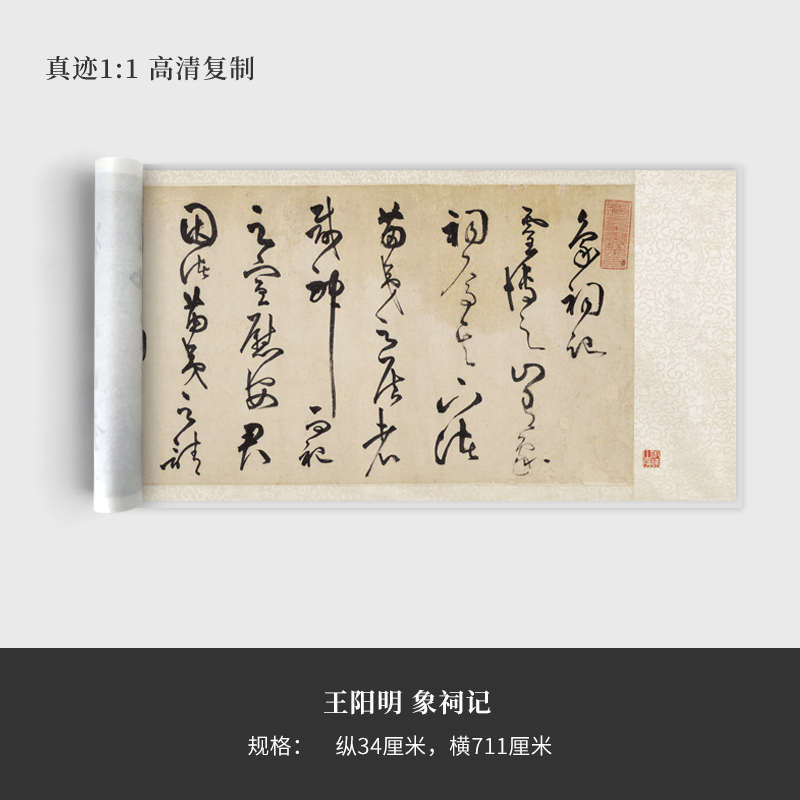 真迹1:1 高清复制
象祠記
靈博之山有象
祠焉其下諸
苗夷之居者
咸神而祀
之宣慰安君
因諸苗夷之請
王阳明 象祠记
规格： 纵34厘米，横711厘米